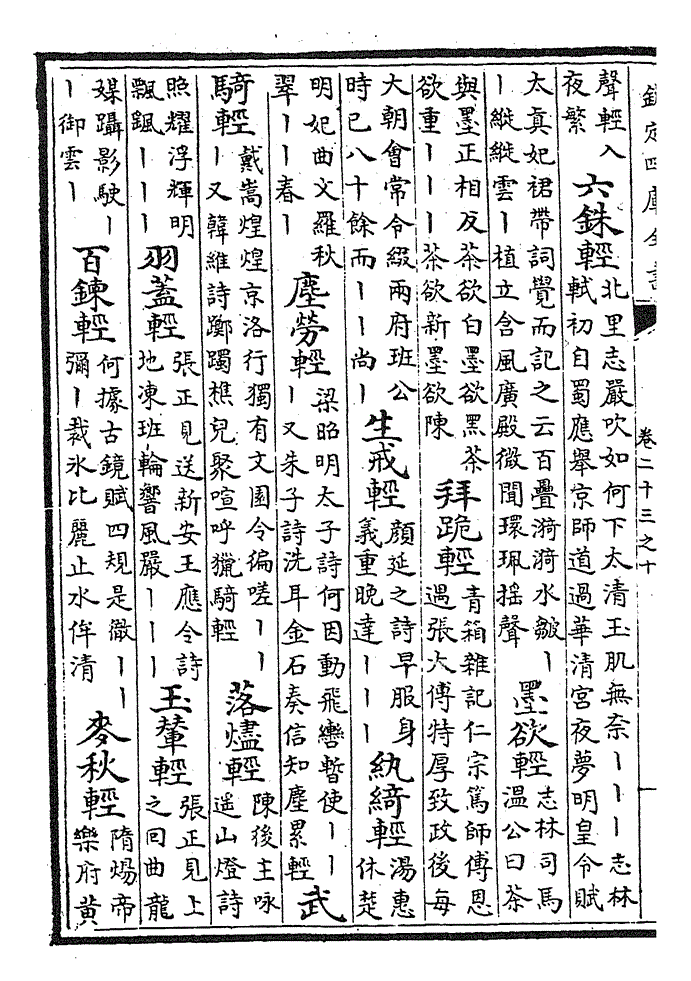 欽定四庫全書
卷二十三之十
一
聲輕入
夜繁
六銖輕
北里志嚴吹如何下太清玉肌無奈丨丨丨志林
軾初自蜀應舉京師道過華清宮夜夢明皇令賦
太真妃裙帶詞覺而記之云百疊漪漪水皺丨
丨縰縰雲丨植立含風廣殿微聞環珮搖聲
墨欲輕
志林司馬
溫公曰茶
與墨正相反茶欲白墨欲黑茶
欲重丨丨丨茶欲新墨欲陳
拜跪輕
青箱雜記仁宗篤師傅恩
遇張大傅特厚致政後每
大朝會常令綴兩府班公
時已八十餘而丨丨尚丨
生戒輕
顔延之詩早服身
義重晚達丨丨丨
紈綺輕
湯惠
休楚
明妃曲文羅秋
翠丨丨春丨
塵勞輕
梁昭明太子詩何因動飛轡暫使丨丨
丨又朱子詩洗耳金石奏信知塵累輕
武
騎輕
戴嵩煌煌京洛行獨有文園令偏嗟丨丨
丨又韓維詩躑躅樵兒聚喧呼獵騎輕
落燼輕
陳後主咏
遥山燈詩
照耀浮輝明
飄颻丨丨丨
羽蓋輕
張正見送新安王應令詩
地凍班輪響風嚴丨丨丨
玉輦輕
張正見上
之回曲龍
媒躡影駛丨
丨御雲丨
百鍊輕
何據古鏡賦四規是徹丨丨
彌丨裁氷比麗止水侔清
麥秋輕
隋煬帝
樂府黄